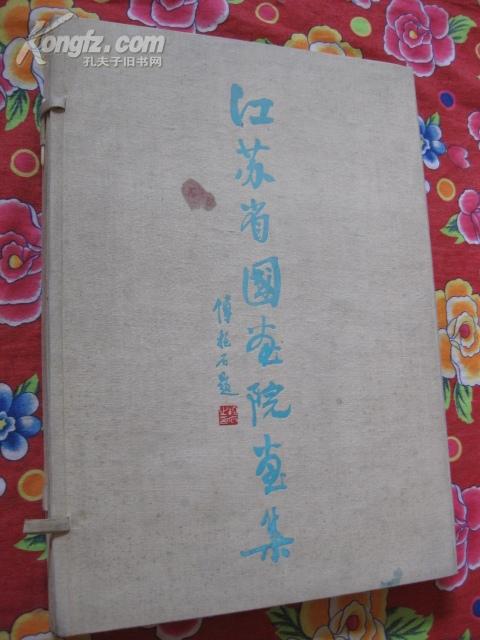 Kongfz.com
孔夫子旧书网
江苏省國画院画集
傅抱石题